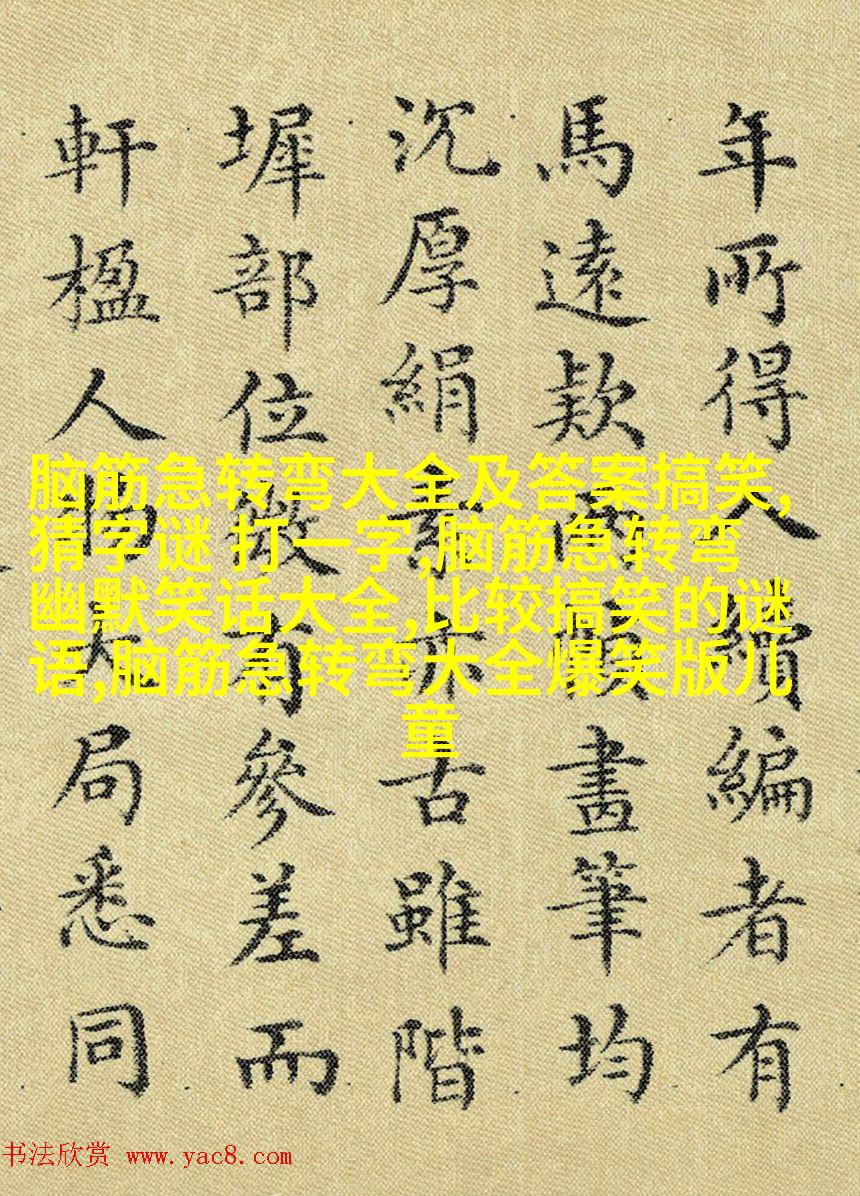 年所得入續編者有
馬遠款畫筆均
沉厚絹素亦古雖階
墀部位微有參差而
軒楹人物大局悉同
脑筋急转弯大全及答案搞笑,
猜字谜 打一字,脑筋急转弯
幽默笑话大全,比较搞笑的谜
语,脑筋急转弯大全爆笑版儿
童
书法欣赏 www.yac8.com